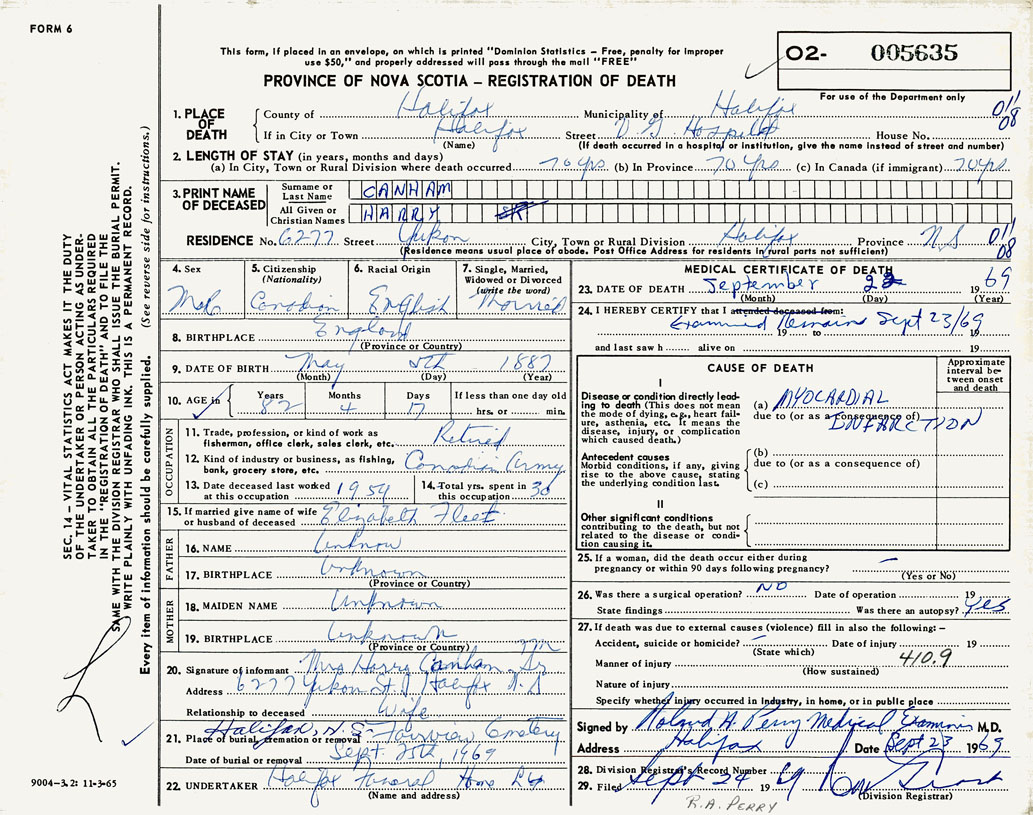 FORM 6
This form, if placed in an envelope, on which is printed "Dominion Statistics – Free, penalty for improper
use $50," and properly addressed will pass through the mail "FREE"
PROVINCE OF NOVA SCOTIA – REGISTRATION OF DEATH
O2- 005635
For use of the Department only
1. PLACE OF DEATH County of Halifax Municipality of Halifax 011 08
If in City or Town Halifax Street V G Hospital House No.
(Name) (If death occurred in a hospital or institution, give the name instead of street and number)
2. LENGTH OF STAY (in years, months and days)
(a) In City, Town or Rural Division where death occurred 70 yrs (b) In Province 70 yrs (c) In Canada (if immigrant) 70 yrs
3. PRINT NAME OF DECEASED
Surname or Last Name CANHAM
All Given or Christian Names HARRY SR
RESIDENCE No. 6277 Street Yukon City, Town or Rural Division Halifax Province N.S 011 08
(Residence means usual place of abode. Post Office Address for residents in rural parts not sufficient)
4. Sex Male
5. Citizenship (Nationality) Canadian
6. Racial Origin English
7. Single, Married, Widowed or Divorced (write the word) Married
8. BIRTHPLACE England
(Province or Country)
9. DATE OF BIRTH May 5th 1887
(Month) (Day) (Year)
10. AGE in Years 82 Months 4 Days 17 If less than one day old hrs. or min.
OCCUPATION
11. Trade, profession, or kind of work as fisherman, office clerk, sales clerk, etc. Retired
12. Kind of industry or business, as fishing, bank, grocery store, etc. Canadian Army
13. Date deceased last worked at this occupation 1954
14. Total yrs. spent in this occupation 30
15. If married give name of wife or husband of deceased Elizabeth Fleet
FATHER
16. NAME Unknow
17. BIRTHPLACE Unknown
(Province or Country)
MOTHER
18. MAIDEN NAME Unknown
19. BIRTHPLACE Unknown
(Province or Country)
20. Signature of informant Mrs Harry Canham Sr
Address 6277 Yukon St. Halifax N.S
Relationship to deceased Wife
21. Place of burial, cremation or removal Halifax, N.S. Fairview Cemetery
Date of burial or removal Sept. 25th, 1969
22. UNDERTAKER Halifax Funeral Home Ltd
(Name and address)
MEDICAL CERTIFICATE OF DEATH
23. DATE OF DEATH September 22 1969
(Month) (Day) (Year)
24. I HEREBY CERTIFY that I attended deceased from:
Examined Remains Sept 23/69
19 to 19
and last saw h alive on 19
CAUSE OF DEATH
Approximate interval between onset and death
I
Disease or condition directly leading to death (This does not mean the mode of dying, e.g., heart failure, asthenia, etc. It means the disease, injury, or complication which caused death.)
(a) MYOCARDIAL
due to (or as a consequence of)
INFARCTION
Antecedent causes
Morbid conditions, if any, giving rise to the above cause, stating the underlying condition last.
(b)
due to (or as a consequence of)
(c)
II
Other significant conditions
contributing to the death, but not related to the disease or condition causing it.
25. If a woman, did the death occur either during pregnancy or within 90 days following pregnancy? –
(Yes or No)
26. Was there a surgical operation? NO Date of operation 19
State findings Was there an autopsy? Yes
27. If death was due to external causes (violence) fill in also the following: –
Accident, suicide or homicide? – Date of injury 19
(State which)
Manner of injury 410.9
(How sustained)
Nature of injury
Specify whether injury occurred in industry, in home, or in public place
Signed by Roland A. Perry Medical Examiner M.D.
Address Halifax Date Sept 23 1969
28. Division Registrar's Record Number
29. Filed Sept 24 1969
(Division Registrar)
R.A. PERRY
SEC. 14 – VITAL STATISTICS ACT MAKES IT THE DUTY
OF THE UNDERTAKER OR PERSON ACTING AS UNDER-
TAKER TO OBTAIN ALL THE PARTICULARS REQUIRED
IN THE "REGISTRATION OF DEATH" AND TO FILE THE
SAME WITH THE DIVISION REGISTRAR WHO SHALL ISSUE THE BURIAL PERMIT.
WRITE PLAINLY WITH UNFADING INK. THIS IS A PERMANENT RECORD.
Every item of information should be carefully supplied. (See reverse side for instructions.)
9004–3.2: 11-3-65